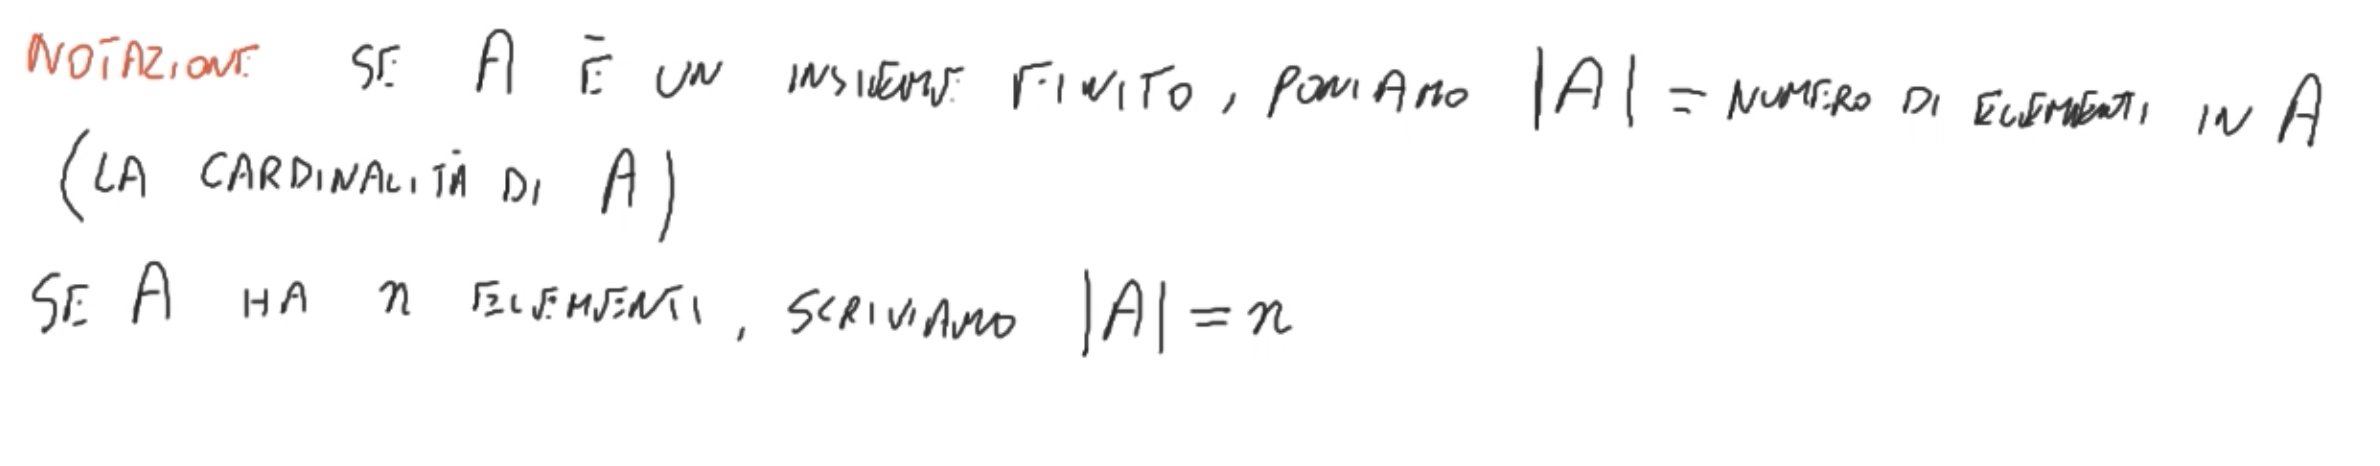 NOTAZIONE SE A È UN INSIEME FINITO, PONIAMO |A| = NUMERO DI ELEMENTI IN A
(LA CARDINALITÀ DI A)
SE A HA n ELEMENTI, SCRIVIAMO |A| = n